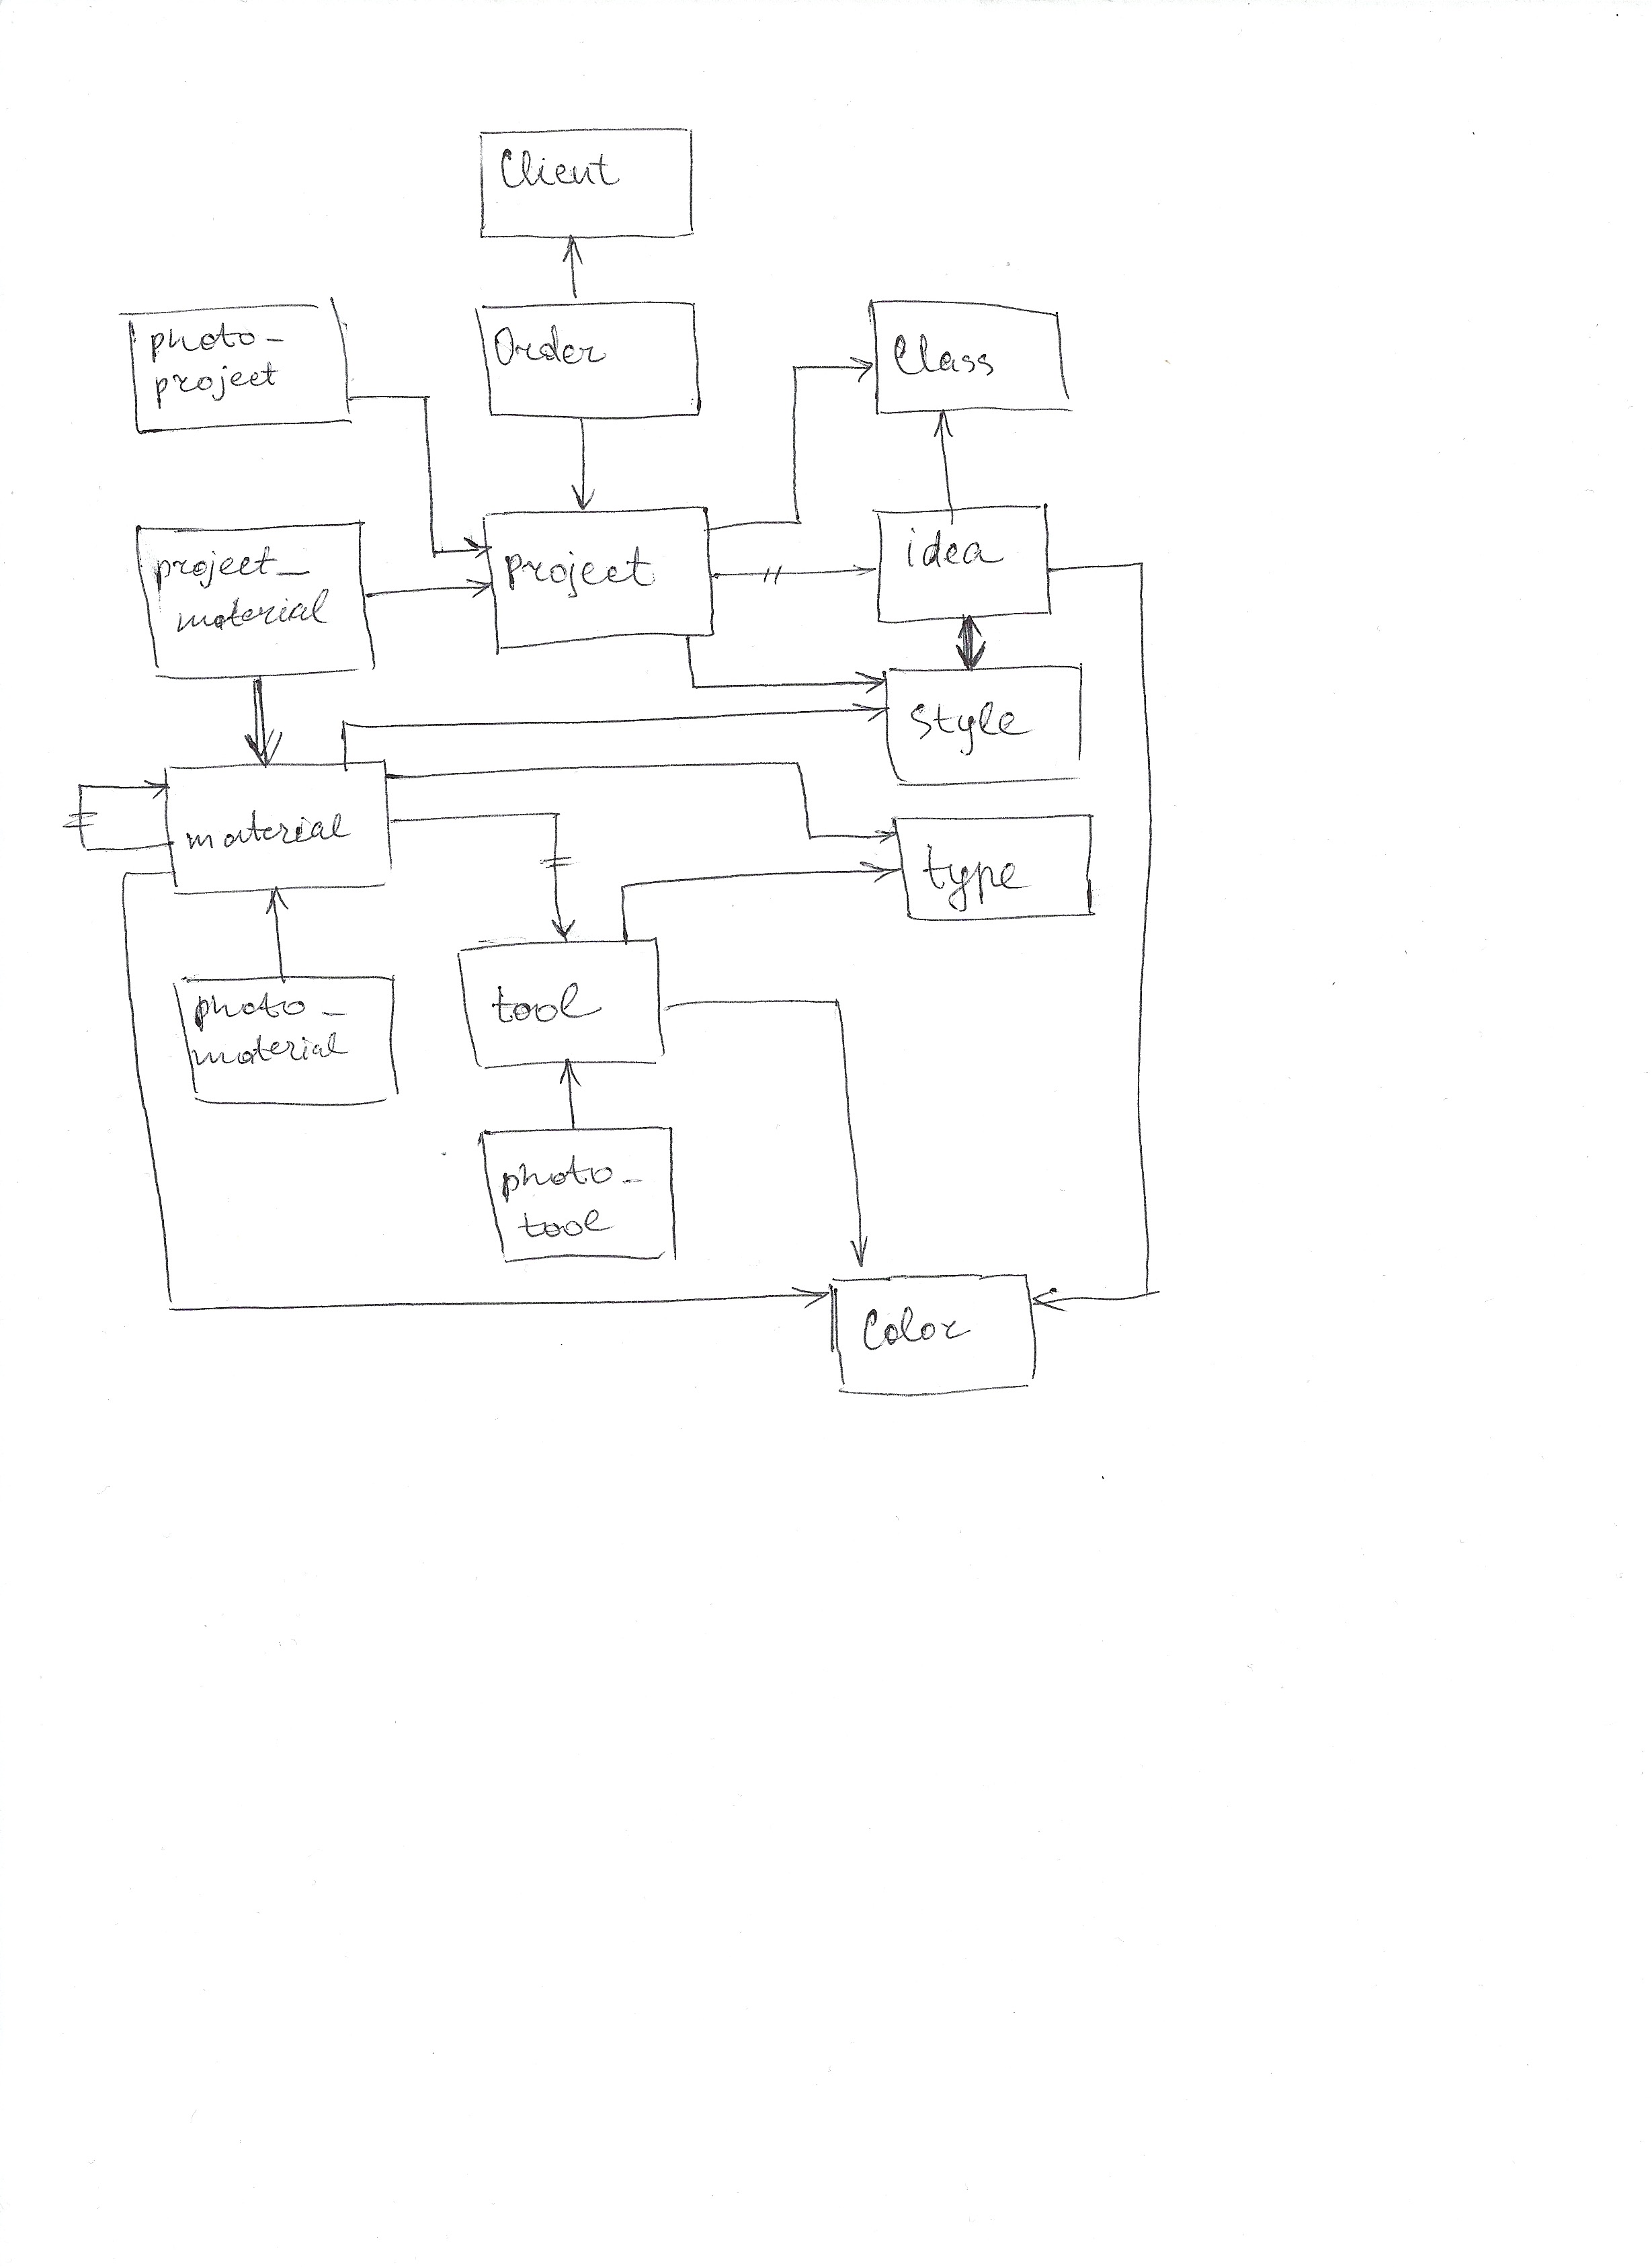 Client
photo-
project
Order
Class
project_
material
project
idea
style
material
type
photo_
material
tool
photo_
tool
Color